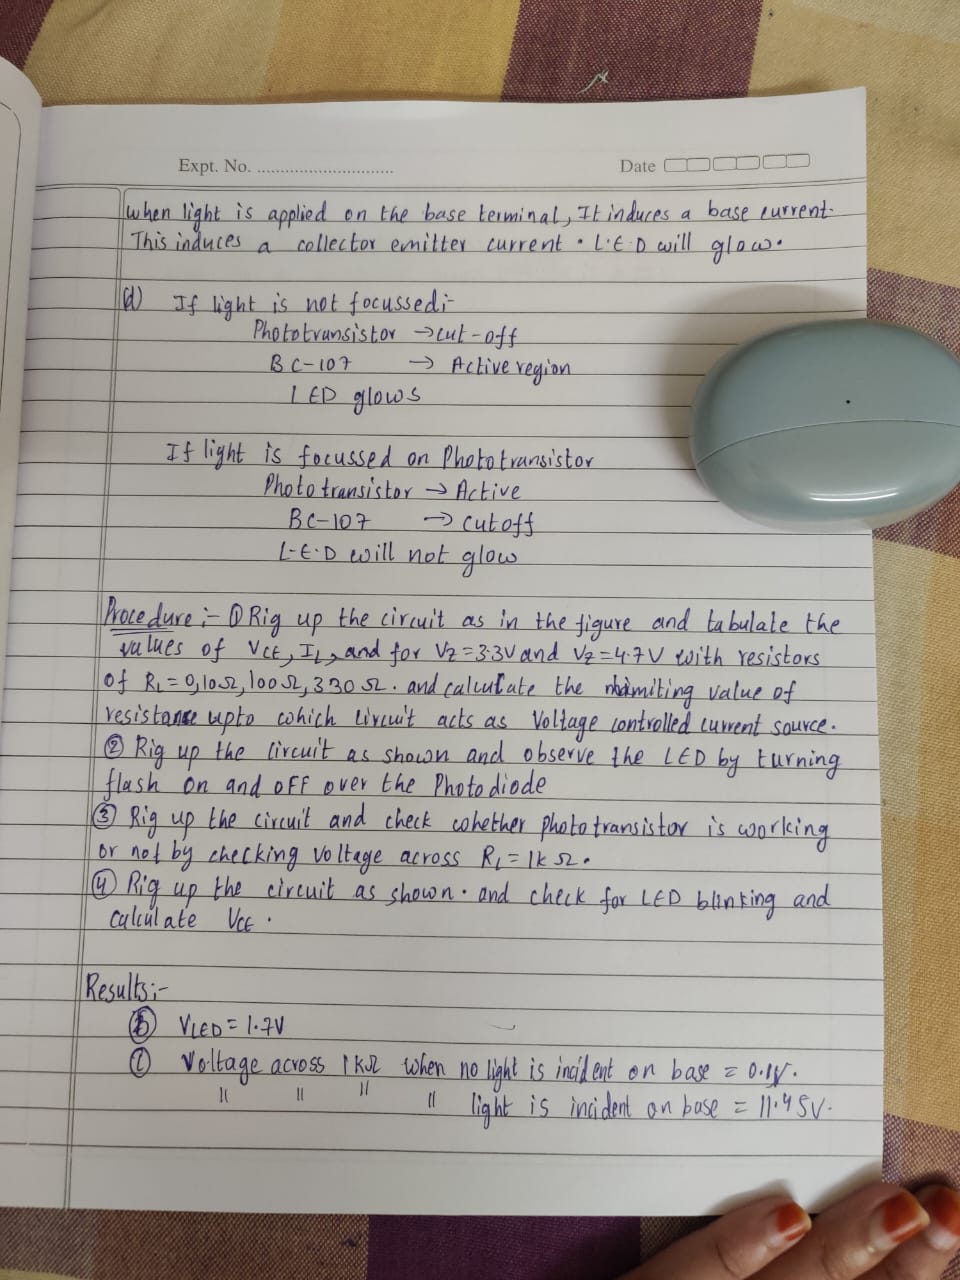 Expt. No. ..............................
Date
when light is applied on the base terminal, It induces a base current.
This induces a collector emitter current. L.E.D will glow.
(d) If light is not focussed:-
Phototransistor → cut-off
BC-107 → Active region
LED glows
If light is focussed on Phototransistor
Phototransistor → Active
BC-107 → cutoff
L.E.D will not glow
Procedure:- ① Rig up the circuit as in the figure and tabulate the
values of VCE, IL, and for VZ=3.3V and VZ=4.7V with resistors
of RL=0,10Ω,100Ω,330Ω. and calculate the value of
resistance upto which circuit acts as Voltage controlled current source.
② Rig up the circuit as shown and observe the LED by turning
flash on and OFF over the Photodiode
③ Rig up the circuit and check whether phototransistor is working
or not by checking voltage across RL=1kΩ.
④ Rig up the circuit as shown. and check for LED blinking and
calculate VCE.
Results:-
ⓑ VLED = 1.7V
ⓒ Voltage across 1kΩ when no light is incident on base = 0.1V.
" " " " light is incident on base = 11.45V.